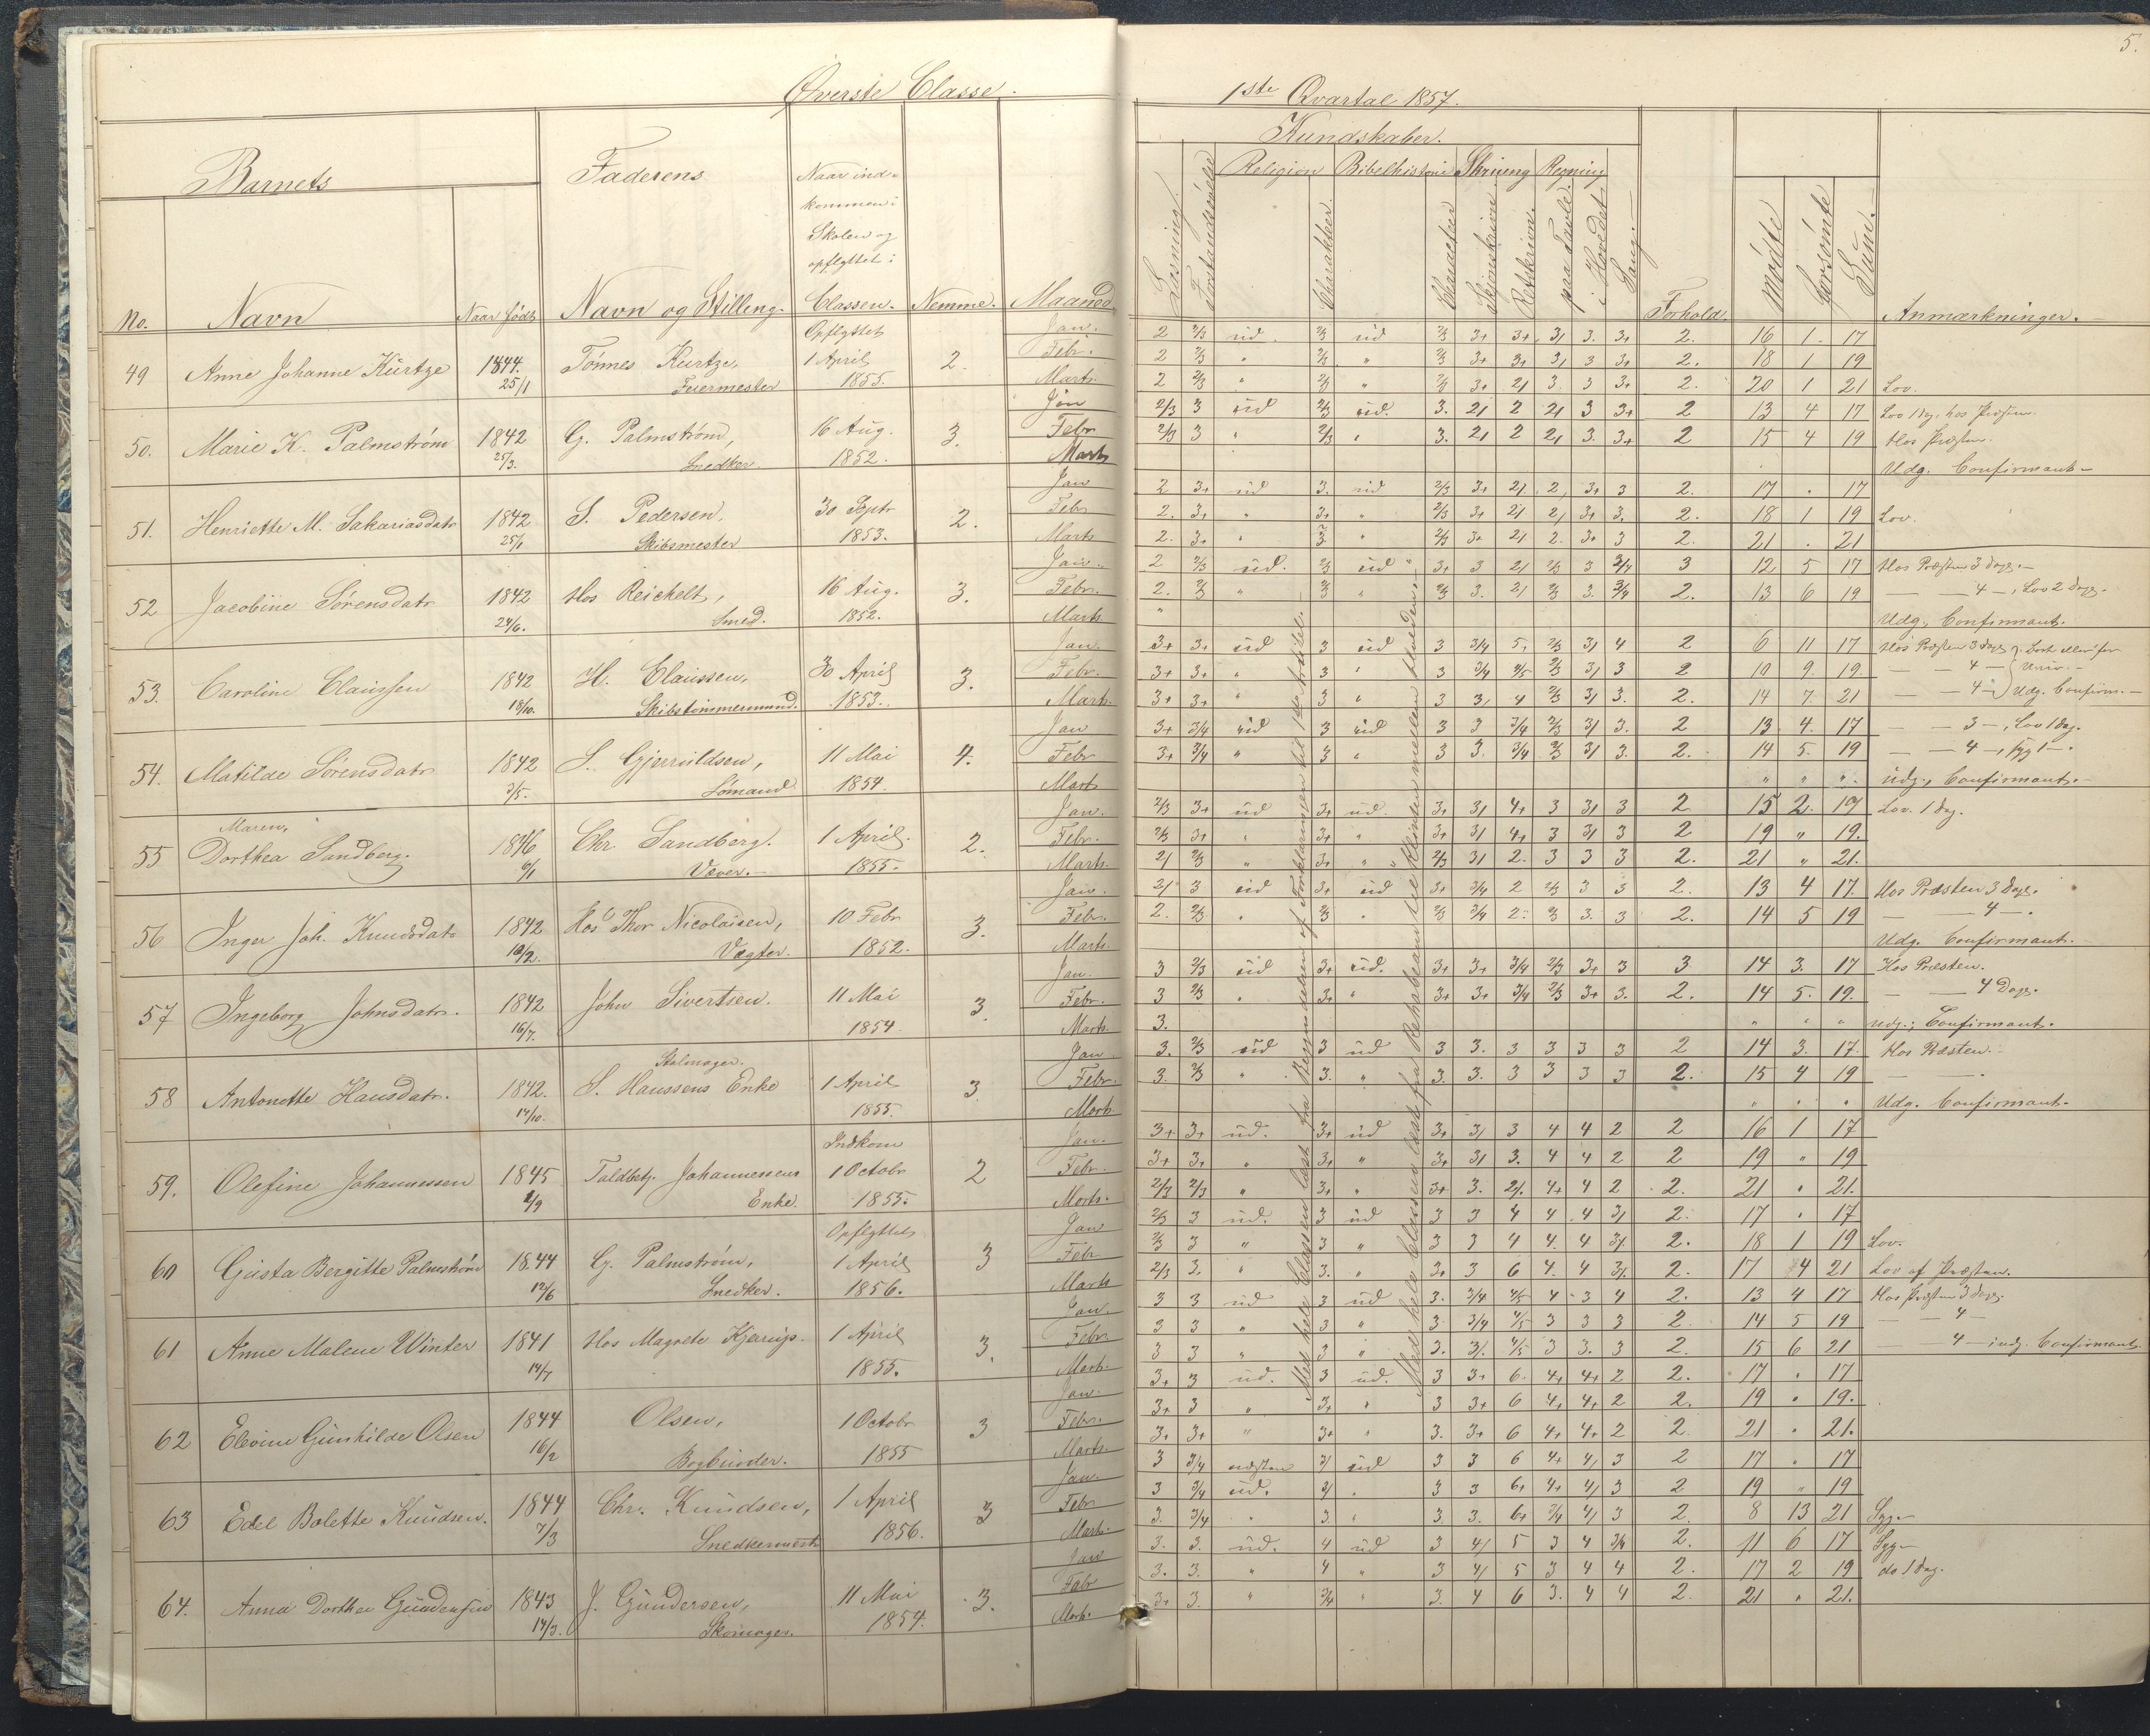 5.
Øverste Classe.
1ste Qvartal 1857.
Barnets
Faderens
Naar ind-
kommen i
Skolen og
opflyttet i
Kundskaber.
Religion Bibelhistorie Skrivning Regning
No. Navn Naar født Navn og Stilling. Classen. Nemme. Maaned
Læsning. Forstandsøvelse Charakter. Charakter Skjønskrivn. Retskrivn. paa Tavle. i Hovedet. Sang. Forhold. Mødte Forsømte Sum. Anmærkninger.
Opflyttet Jan. 2 2/3 ud. 2/3 ud 2/3 3+ 3+ 3/ 3. 3+ 2. 16 1. 17
49 Anne Johanne Kürtze 1844. Tønnes Kurtze, 1 April 2. Febr. 2 2/3 " 2/3 " 2/3 3+ 3+ 3/ 3 3+ 2. 18 1 19
25/1 Feiermester 1855. Marts. 2 2/3 " 2/3 " 2/3 3+ 2/ 3. 3 3+ 2. 20 1 21 Lov.
Jan 2/3 3 ud 2/3 ud. 3. 2/ 2 2/ 3 3+ 2 13 4 17 Lov 1 Dag, hos Præsten.
50. Marie K. Palmstrøm 1842 G. Palmstrøm, 16 Aug. 3. Febr 2/3 3 " 2/3 " 3. 2/ 2 2/ 3. 3+ 2 15 4 19 Hos Præsten.
25/3. Snedker. 1852. Marts Udg. Confirmant-
Jan 2 3+ ud 3. ud 2/3 3+ 2/ 2, 3+ 3 2. 17 . 17
51. Henriette M. Sakariasdatr 1842 S. Pedersen, 30 Septr 2. Febr 2. 3+ " 3+ " 2/3 3+ 2/ 2, 3+ 3. 2. 18 1 19 Lov.
25/1 Skibsmester 1853. Marts 2. 3+ " 3 " 2/3 3+ 2/ 2. 3+ 3 2. 21 . 21
Jan. 2 2/3 ud. 2/3 ud 3+ 3 2/ 2/3 3 3/4 3 12 5 17 Hos Præsten 3 Dage.-
52 Jacobine Sørensdatr 1842 Hos Reichelt, 16 Aug. 3. Febr. 2. 2/3 " 2/3 " 2/3 3. 2/ 2/3 3. 3/4 2. 13 6 19 - - 4 -, Lov 2 Dage.
24/6. Smed. 1852. Marts Udg. Confirmant.
Jan. 3+ 3+ ud 3 ud 3 3/4 5+ 2/3 3/ 4 2 6 11 17 Hos Præsten 3 Dage
53. Caroline Claussen 1842 H. Claussen, 30 April 3. Febr. 3+ 3+ " 3 " 3 3/4 4/5 2/3 3/ 3 2 10 9. 19 - - 4 -
18/10. Skibstømmermand. 1853. Marts. 3+ 3+ " 3 " 3 3/ 4 2/3 3/ 3. 2. 14 7. 21 - - 4 - Udg. Confirm.-
Jan 3+ 3/4 ud 3 ud 3 3 3/4 2/3 3/ 3. 2 13 4. 17 - 3 -, Lov 1 Dag.
54. Matilde Sørensdatr 1842 S. Gjerruldsen, 11 Mai 4. Febr 3+ 3/4 " 3 " 3 3. 3/4 2/3 3/ 3. 2. 14 5. 19 - 4 -, Syg 1 -.
3/5. Sømand 1854. Marts " " " udg, Confirmant.-
Maren, Jan. 2/3 3+ ud 3+ ud. 3+ 3/ 4+ 3 3/ 3 2 15 2. 17 Lov. 1 Dag.
55 Dorthea Sandberg. 1846 Chr. Sandberg. 1 April. 2. Febr. 2/3 3+ " 3+ " 3+ 3/ 4+ 3 3/ 3 2 19 " 19.
6/1 Væver.- 1855. Marts. 2/ 2/3 " 3+ " 2/3 3/ 2. 3 3 3 2. 21 " 21.
Jan. 2/ 3 ud 3+ ud 3+ 3/4 2 2/3 3 3 2. 13 4 17. Hos Præsten 3 Dage.
56 Inger Joh. Knudsdatr 1842 Hos Thor Nicolaisen, 10 Febr 3. Febr. 2. 2/3 " 2/3 " 2/3 3/4 2. 2/3 3. 3 2. 14 5 19 - 4 -.
10/2. Vægter. 1852. Marts. Udg. Confirmant.-
Jan. 3 2/3 ud 3+ ud. 3+ 3+ 3/4 2/3 3+ 3 3 14 3. 17 Hos Præsten.
57 Ingeborg Johnsdatr. 1842 John Sivertsen. 11 Mai 3. Febr. 3 2/3 " 3+ " 3+ 3+ 3/4 2/3 3+ 3. 2. 14 5. 19. - - 4 Dage.
16/7. 1854. Marts. 3. " " " udg.; Confirmant.
Stolmager. Jan. 3. 2/3 ud 3 ud 3 3. 3 3 3 3 2 14 3. 17. Hos Præsten.
58 Antonette Hansdatr. 1842. S. Hanssens Enke 1 April 3 Febr. 3. 2/3 " 3. " 3. 3. 3 3 3 3 2. 15 4 19 - -.
14/10. 1855. Marts " " " Udg. Confirmant.
Indkom Jan. 3+ 3+ ud. 3+ ud 3+ 3/ 3 4 4 2 2 16 1 17
59. Olefine Johannessen 1845 Toldbetj. Johannessens 1 Octobr 2 Febr. 3+ 3+ " 3+ " 3+ 3/ 3. 4 4 2 2 19 " 19
2/9 Enke. 1855. Marts. 2/3 2/3 " 3+ " 3+ 3. 2/. 4+ 4 2 2. 21 " 21.
Opflyttet Jan 2/3 3 ud. 3 ud 3 3 4 4 4 3/ 2. 17 . 17
60 Gusta Bergitte Palmstrøm 1844 G. Palmstrøm, 1 April 3 Febr 2/3 3 " 3 " 3 3 4 4. 4 3/. 2. 18 1 19 Lov.
12/6 Snedker. 1856. Marts 2/3 3. " 3. " 3+ 3 6 4. 4 3/. 2. 17 4 21 Lov af Præsten.
Jan. 3 3 ud 3 ud 3. 3/4 4/5 4 3 4 2. 13 4 17 Hos Præsten 3 Dage.
61 Anne Malene Winter 1841 Hos Magrete Kjærup. 1 April 3. Febr. 3 3 " 3 " 3 3/4 4/5 3 3 3 2 14 5 19 - - 4 -
14/7 1855. Marts. 3 3 " 3 " 3. 3/. 4/5 3 3. 3 2. 15 6 21 - 4 - udg. Confirmant.
Jan. 3+ 3 ud. 3 ud. 3 3+ 6. 4+ 4+ 2 2. 17 . 17
62 Elevine Gunhilde Olsen 1844 Olsen, 1 Octobr 3 Febr. 3+ 3 " 3+ " 3 3+ 6 4+ 4+ 2 2. 19 " 19.
16/2 Bogbinder. 1855 Marts. 3+ 3+ " 3+ " 3. 3+ 6 4+ 4+ 2 2. 21 . 21.
Jan. 3 3/4 næsten 3/ ud 3 3 6 4+ 4/ 3 2 17 . 17
63 Edel Bolette Knudsen. 1844 Chr. Knudsen, 1 April 3 Febr 3 3/4 ud. 3/ " 3 3 6+ 4+ 4/ 3 2 19 " 19
7/3 Snedkermestr 1856. Marts. 3. 3/4 " 3. " 3. 3. 6+ 3/4 4/ 3 2. 8 13 21 Syg.-
Jan 3. 3. ud. 4 ud 3 4/ 5 3 4 3/4 2. 11 6 17 Syg-
64. Anna Dorthea Gundersen 1843 J. Gundersen, 11 Mai 3. Febr 3. 3. " 4 " 3 4/ 5 3 4 4 2. 17 2 19 do 1 Dag.
14/3. Skomager. 1854. Marts. 3+ 3. " 3/4 " 3. 4 6 3. 4 4 2. 21 . 21.
Med hele Classen læst fra Begyndelsen af Forklaringen til
Med hele Classen læst fra Rehabeam til